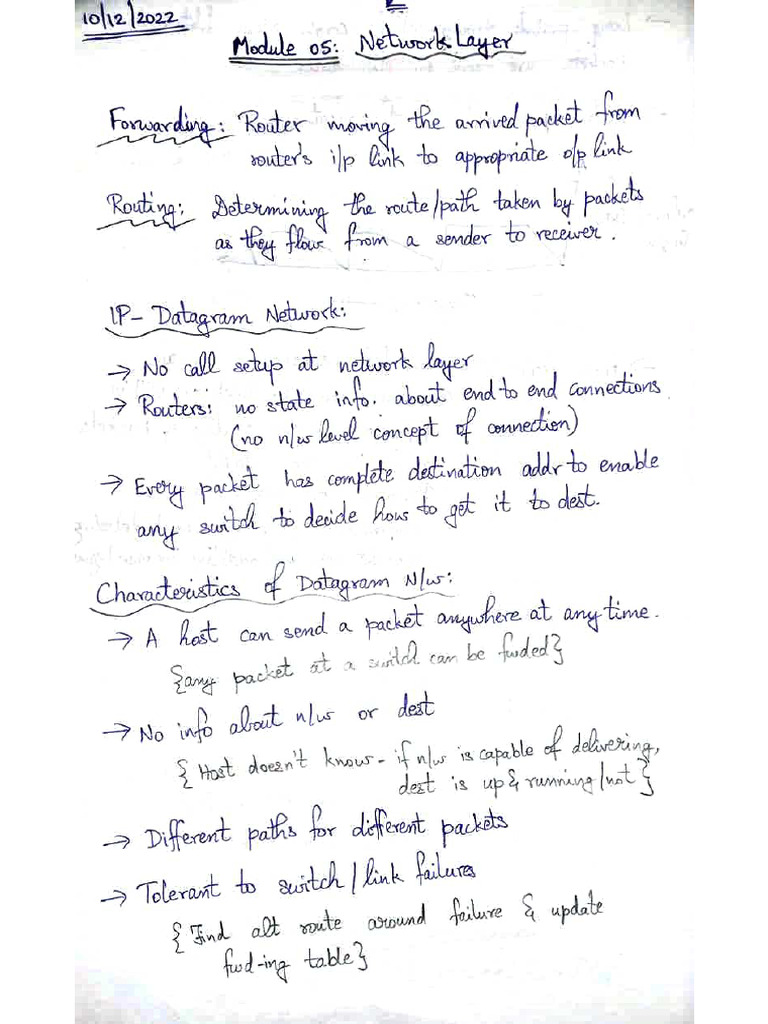 10/12/2022
Module 05: Network Layer
Forwarding: Router moving the arrived packet from
router's i/p link to appropriate o/p link
Routing: Determining the route/path taken by packets
as they flow from a sender to receiver.
IP- Datagram Network:
→ No call setup at network layer
→ Routers: no state info. about end to end connections
(no n/w level concept of connection)
→ Every packet has complete destination addr to enable
any switch to decide how to get it to dest.
Characteristics of Datagram N/w:
→ A host can send a packet anywhere at any time.
{any packet at a switch can be fwded}
→ No info about n/w or dest
{Host doesn't know - if n/w is capable of delivering,
dest is up & running/not}
→ Different paths for different packets
→ Tolerant to switch/link failures
{Find alt route around failure & update
fwd-ing table}